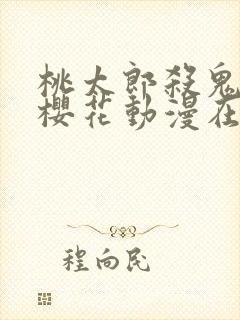 桃太郎殺鬼
櫻花動漫在
程向民